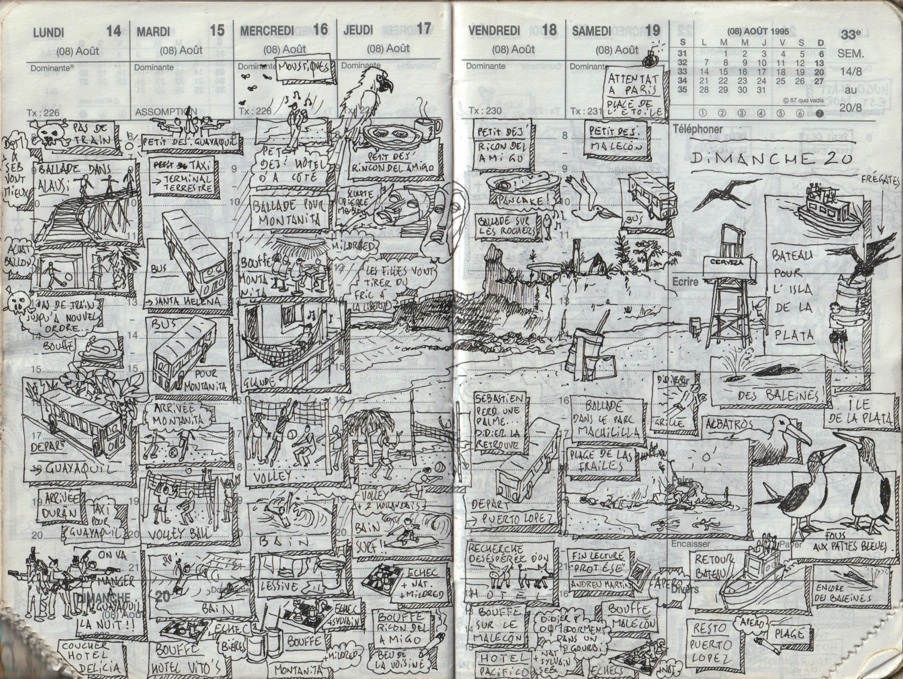 LUNDI 14
(08) Août
Dominante®
Tx : 226
PAS DE
TRAIN
BALLADE DANS
ALAUSI
JUSQU'À NOUVEL
ORDRE...
BOUFFE
DÉPART
→ GUAYAQUIL
ARRIVÉE
DURÁN
TAXI
POUR
GUAYAQUIL
ON VA
MANGER
GUAYAQUIL
LA NUIT!!
DIMANCHE 20
COUCHER
HOTEL
DELICIA
MARDI 15
(08) Août
Dominante
ASSOMPTION
PETIT DEJ. GUAYAQUIL
TAXI
→ TERMINAL
TERRESTRE
BUS
→ SANTA HELENA
BUS
POUR
MONTANITA
ARRIVÉE
MONTANITA
VOLLEY BALL
BAIN
BOUFFE
HOTEL VITO'S
MERCREDI 16
(08) Août
Dominante
MOUSTIQUES
Tx : 228
PETIT
DEJ. HOTEL
D'A COTÉ
BALLADE POUR
MONTANITA
BOUFFE
MONTA
NITA
GLANDE
VOLLEY
BAIN
LESSIVE
ECHEC
BIÈRES
ECHEC
+SYLVAIN
BOUFFE
MONTANITA
MILDRED
JEUDI 17
(08) Août
Dominante
PETIT DEJ.
RINCON DEL AMIGO
MILDRED
LES FILLES VONT
TIRER DU
FRIC A
LA LIBERTAD
VOLLEY
BAIN
SURF!
ECHEC
+ NAT.
+ MILDRED
BOUFFE
RICON DEL
AMIGO
BEU DE
LA VOISINE
VENDREDI 18
(08) Août
Dominante
Tx : 230
PETIT DEJ
RINCON DEL
AMIGO
PANCAKE!
BALLADE SUR
LES ROCHERS
SEBASTIEN
PERD UNE
PALME...
DIDIER LA
RETROUVE
DÉPART
→ PUERTO LOPEZ
RECHERCHE
DÉSESPÉRÉE D'UN
HOTEL
BOUFFE
SUR LE
MALECÓN
HOTEL
PACIFICO
DIDIER
DORMENT
DANS UN
GOURBI
NAT
SYLVAIN
SEB
SAMEDI 19
(08) Août
Dominante
Tx : 231
ATTENTAT
A PARIS
PLACE DE
L'ETOILE
PETIT DEJ.
MALECÓN
BUS
BALLADE
DANS LE PARC
MACHILILLA
PLAGE DE LAS
FRAILES
GRILLE
FIN LECTURE
"PROTÉSÉ"
APERO
BOUFFE
MALECÓN
ECHECS
+NAT
S L M M J V S D
(08) AOÛT 1995
31 1 2 3 4 5 6
32 7 8 9 10 11 12 13
33 14 15 16 17 18 19 20
34 21 22 23 24 25 26 27
35 28 29 30 31
© 57 quo vadis
33e
SEM.
14/8
au
20/8
Téléphoner
DIMANCHE 20
FRÉGATES
CERVEZA
Ecrire
BATEAU
POUR
L'ISLA
DE LA
PLATA
DES BALEINES
ÎLE
DE LA PLATA
ALBATROS
FOUS
AUX PATTES BLEUES.
Encaisser
Payer
RETOUR
BATEAU
ENCORE
DE BALEINES
Divers
RESTO
PUERTO
LOPEZ
PLAGE